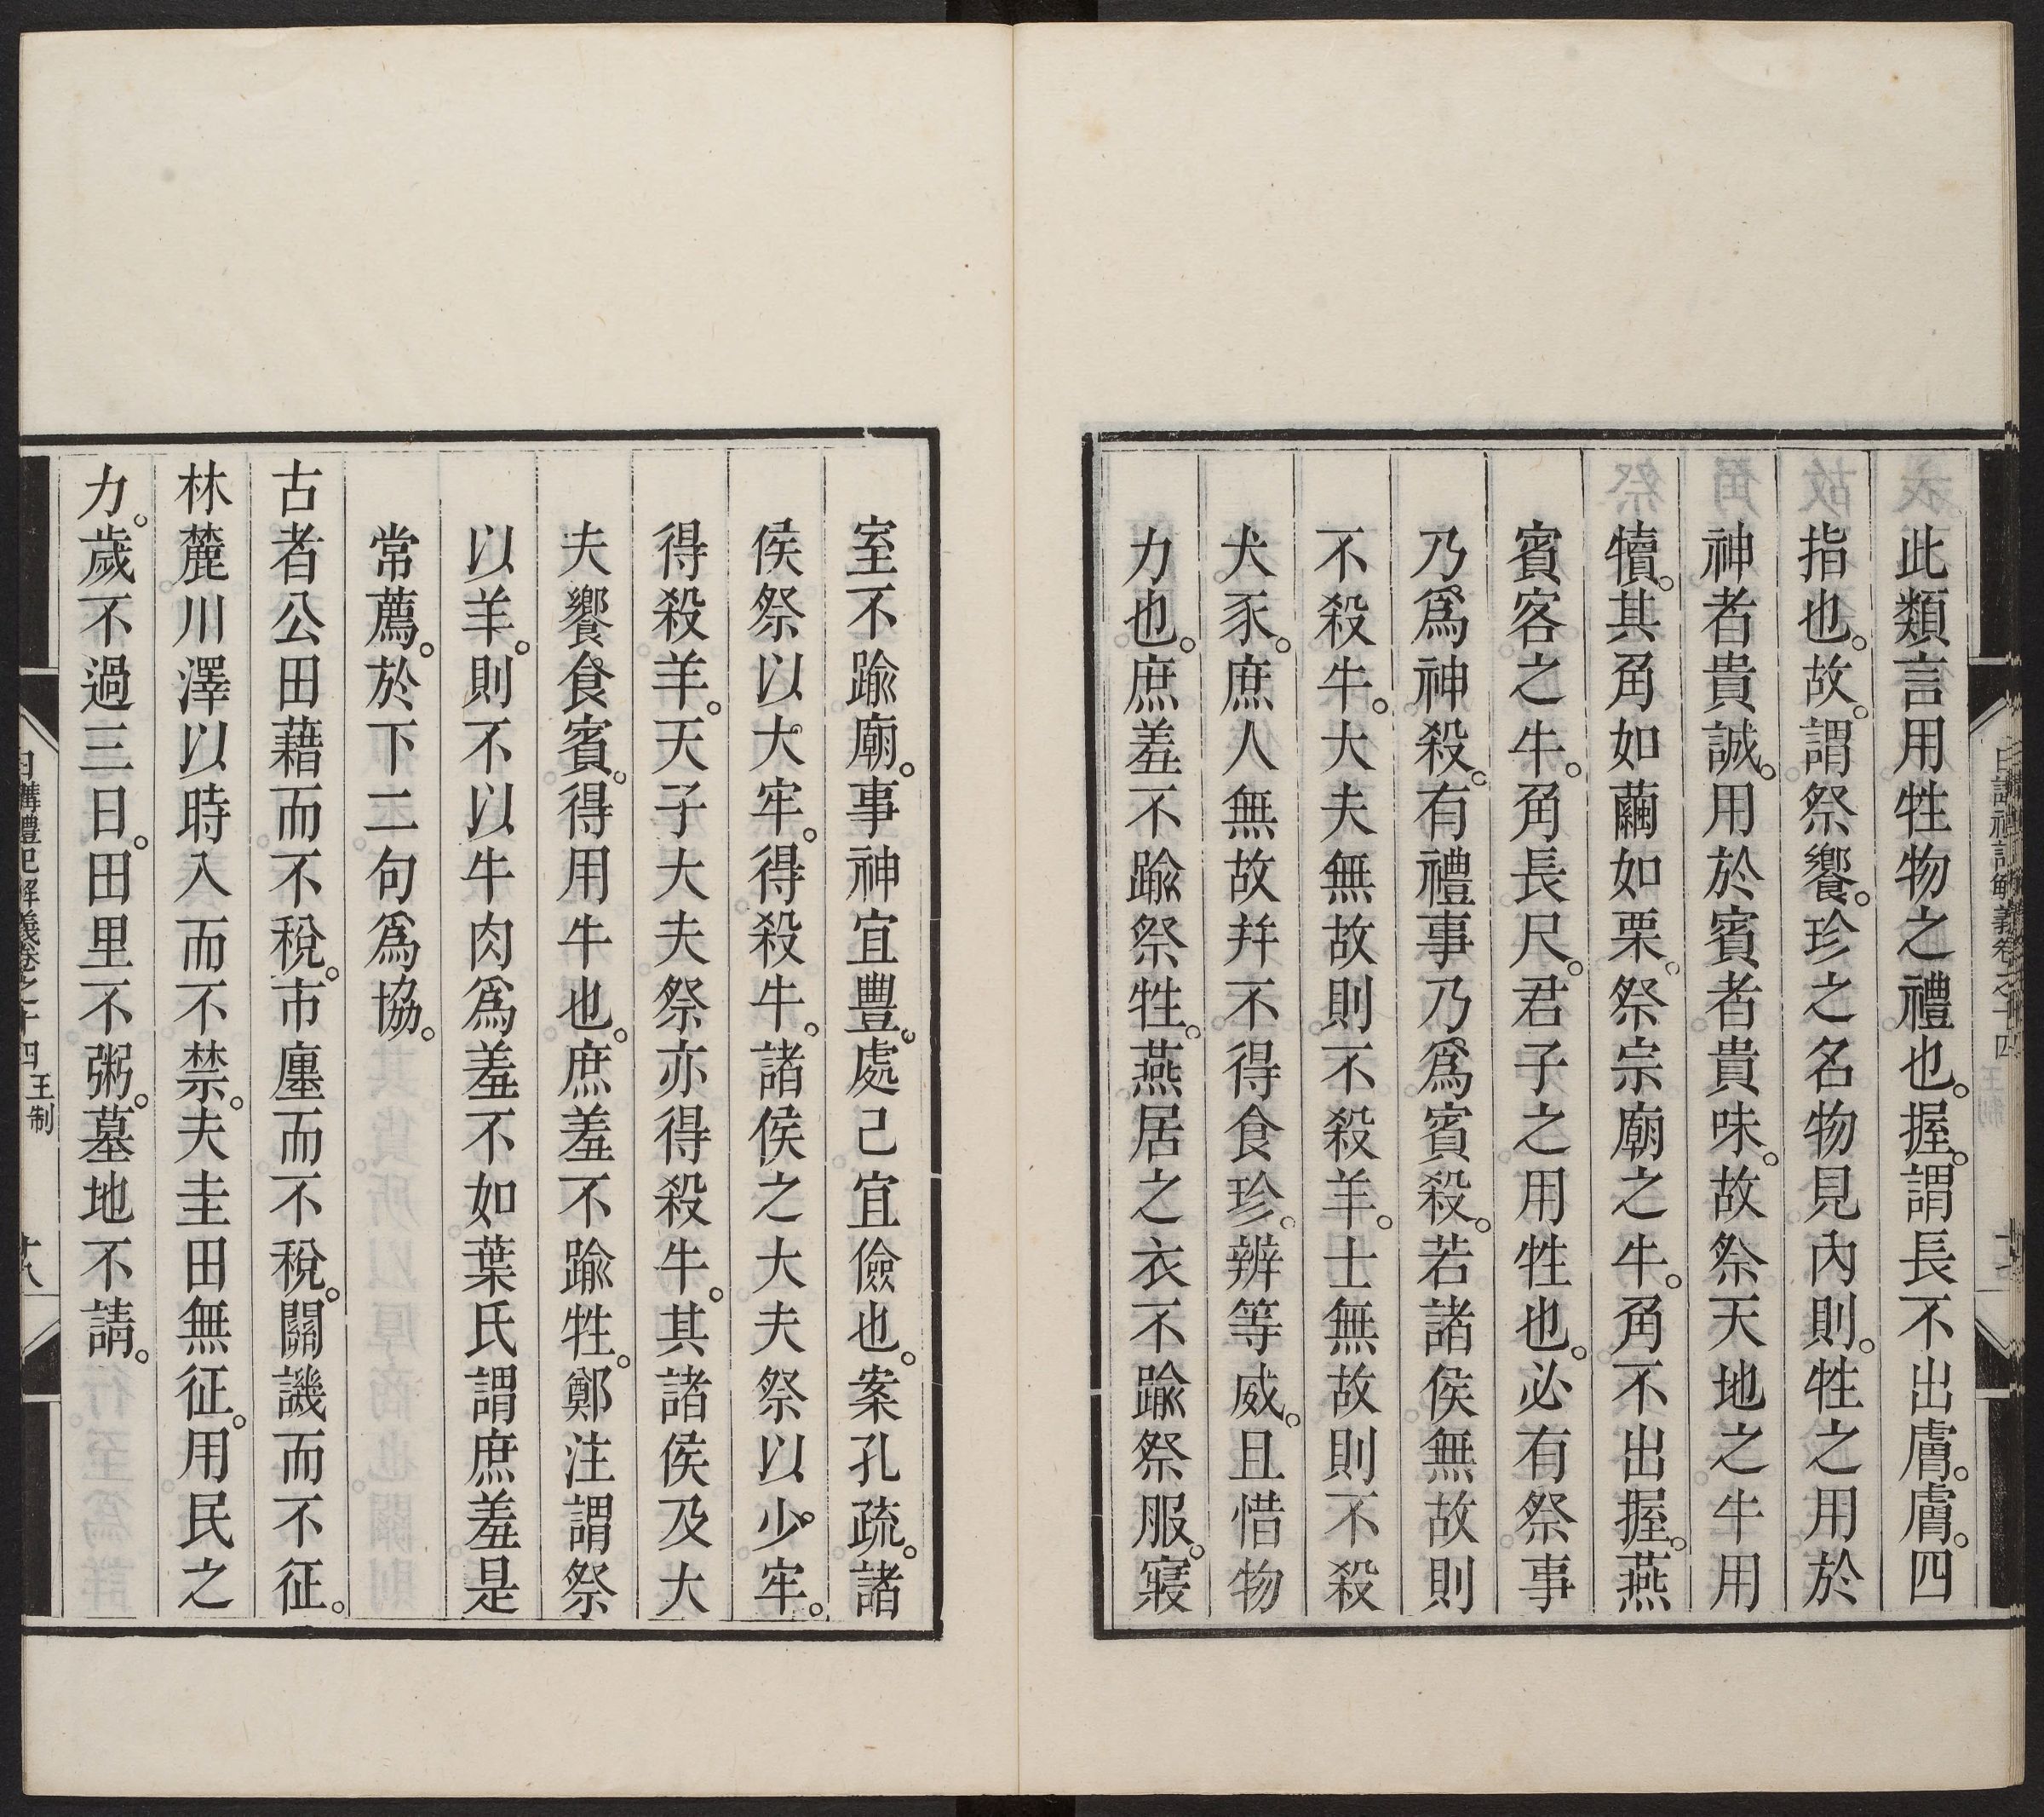 此類言用牲物之禮也。握。謂長不出膚。膚。四
指也。故。謂祭饗。珍之名物見內則。牲之用於
神者貴誠。用於賓者貴味。故祭天地之牛用
犢。其角如繭如栗。祭宗廟之牛。角不出握。燕
賓客之牛。角長尺。君子之用牲也。必有祭事
乃爲神殺。有禮事乃爲賓殺。若諸侯無故則
不殺牛。大夫無故則不殺羊。士無故則不殺
犬豕。庶人無故幷不得食珍。辨等威。且惜物
力也。庶羞不踰祭牲。燕居之衣不踰祭服。寢
室不踰廟。事神宜豐。處己宜儉也。案孔疏。諸
侯祭以大牢。得殺牛。諸侯之大夫祭以少牢。
得殺羊。天子大夫祭亦得殺牛。其諸侯及大
夫饗食賓。得用牛也。庶羞不踰牲。鄭注謂祭
以羊。則不以牛肉爲羞不如葉氏謂庶羞是
常薦。於下二句爲協。
古者公田藉而不稅。市廛而不稅。關譏而不征。
林麓川澤以時入而不禁。夫圭田無征。用民之
力。歲不過三日。田里不粥。墓地不請。
日講禮記解義卷之十四 王制 十八